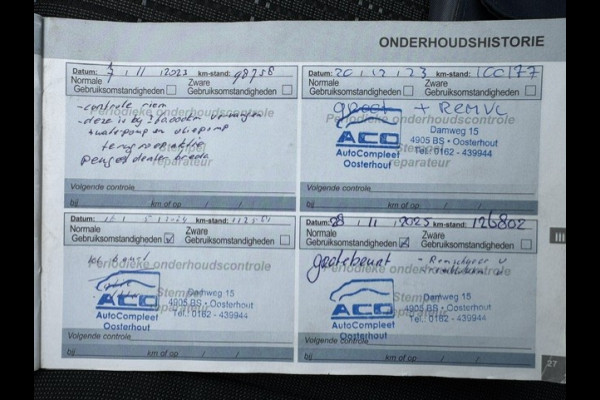 ONDERHOUDSHISTORIE
Datum: 7 / 11 / 2023 km-stand: 98758
Normale Gebruiksomstandigheden
Zware Gebruiksomstandigheden
Periodieke onderhoudscontrole
- controle riem
- deze is bij
waterpomp en
terugroepaktie
dealer breda
Volgende controle
bij km of op / /
Datum: 20 / 12 / 23 km-stand: 100177
Normale Gebruiksomstandigheden
Zware Gebruiksomstandigheden
groot + REMVL
Periodieke onderhoudscontrole
Damweg 15
ACO
4905 BS • Oosterhout
AutoCompleet
Tel.: 0162 - 439944
Oosterhout
Volgende controle
bij km of op / /
km-stand:
Normale Gebruiksomstandigheden
Zware Gebruiksomstandigheden
Periodieke onderhoudscontrole
Damweg 15
ACO
4905 BS • Oosterhout
AutoCompleet
Tel.: 0162 - 439944
Oosterhout
Volgende controle
bij km of op / /
Datum: 28 / 11 / 2025 km-stand: 126802
Normale Gebruiksomstandigheden
Zware Gebruiksomstandigheden
grote beurt
Periodieke onderhoudscontrole
Damweg 15
ACO
4905 BS • Oosterhout
AutoCompleet
Tel.: 0162 - 439944
Oosterhout
Volgende controle
bij km of op / /
27